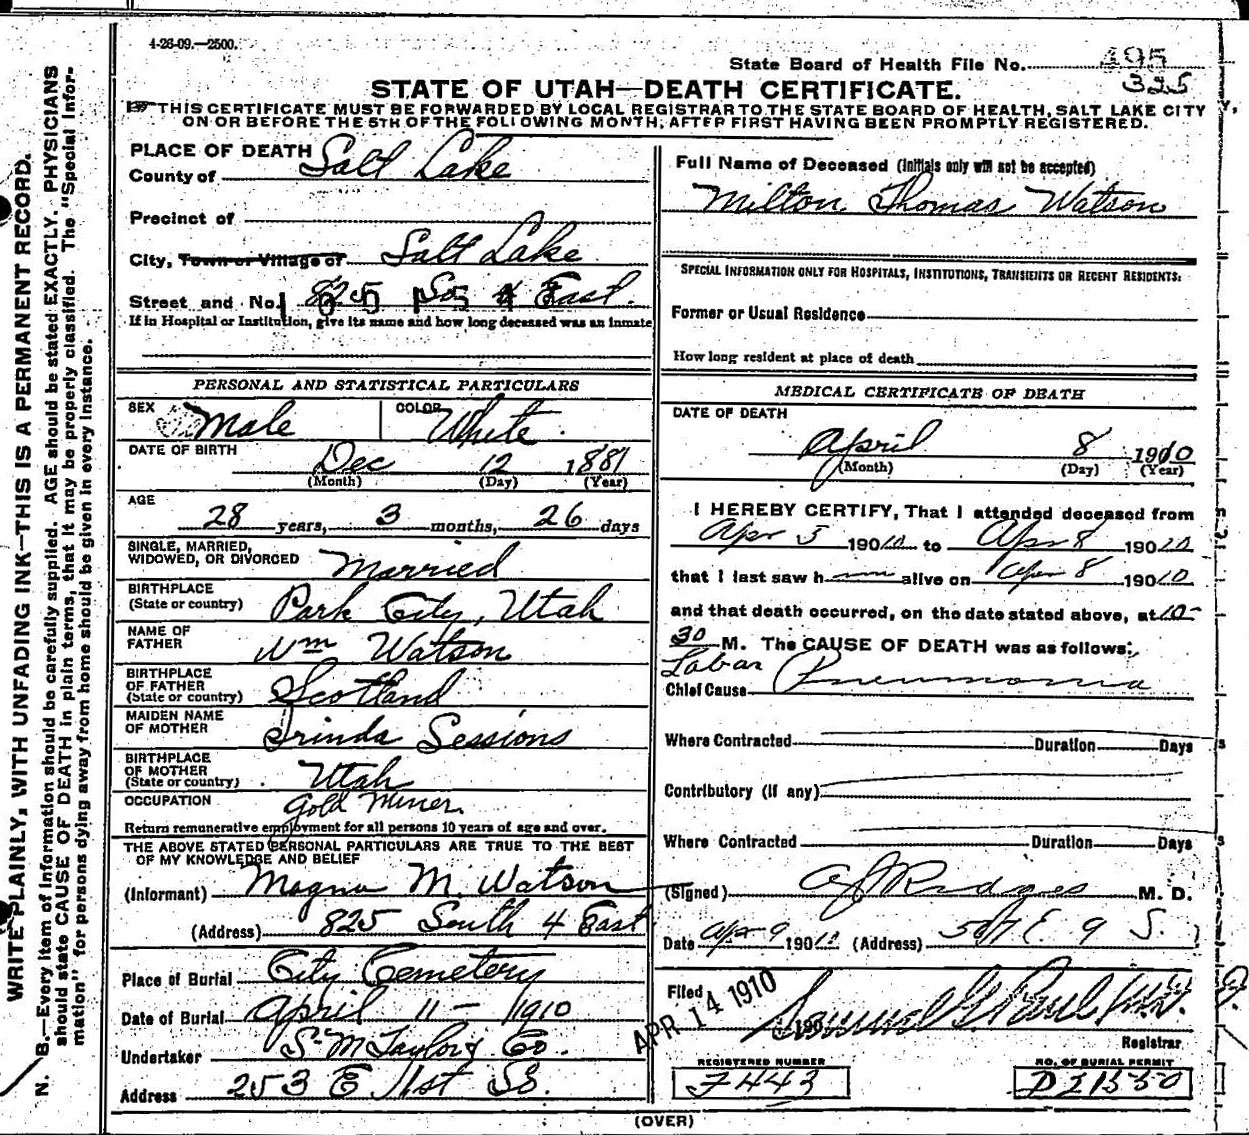 4-26-09.—2500.
State Board of Health File No. 495
325
STATE OF UTAH—DEATH CERTIFICATE.
THIS CERTIFICATE MUST BE FORWARDED BY LOCAL REGISTRAR TO THE STATE BOARD OF HEALTH, SALT LAKE CITY
ON OR BEFORE THE 5TH OF THE FOLLOWING MONTH, AFTER FIRST HAVING BEEN PROMPTLY REGISTERED.
WRITE PLAINLY, WITH UNFADING INK—THIS IS A PERMANENT RECORD.
N. B.—Every item of information should be carefully supplied. AGE should be stated EXACTLY. PHYSICIANS
should state CAUSE OF DEATH in plain terms, that it may be properly classified. The "Special Infor-
mation" for persons dying away from home should be given in every instance.
PLACE OF DEATH
County of Salt Lake
Precinct of
City, Town or Village of Salt Lake
Street and No. 825 So 4 East.
If in Hospital or Institution, give its name and how long deceased was an inmate
PERSONAL AND STATISTICAL PARTICULARS
SEX Male COLOR White.
DATE OF BIRTH
Dec 12 1881
(Month) (Day) (Year)
AGE
28 years, 3 months, 26 days
SINGLE, MARRIED,
WIDOWED, OR DIVORCED Married
BIRTHPLACE
(State or country) Park City, Utah
NAME OF
FATHER Wm Watson
BIRTHPLACE
OF FATHER
(State or country) Scotland
MAIDEN NAME
OF MOTHER Srinda Sessions
BIRTHPLACE
OF MOTHER
(State or country) Utah
OCCUPATION Gold Miner.
Return remunerative employment for all persons 10 years of age and over.
THE ABOVE STATED PERSONAL PARTICULARS ARE TRUE TO THE BEST
OF MY KNOWLEDGE AND BELIEF
(Informant) Magna M. Watson
(Address) 825 South 4 East
Place of Burial City Cemetery
Date of Burial April 11 - 1910
Undertaker S. M Taylor & Co.
Address 253 E 1st So.
Full Name of Deceased (Initials only will not be accepted)
Milton Thomas Watson
SPECIAL INFORMATION ONLY FOR HOSPITALS, INSTITUTIONS, TRANSIENTS OR RECENT RESIDENTS:
Former or Usual Residence
How long resident at place of death
MEDICAL CERTIFICATE OF DEATH
DATE OF DEATH
April 8 1910
(Month) (Day) (Year)
I HEREBY CERTIFY, That I attended deceased from
Apr 5 190 10 to Apr 8 190 10
that I last saw h im alive on Apr 8 190 10
and that death occurred, on the date stated above, at 10-
30 M. The CAUSE OF DEATH was as follows:
Lobar
Chief Cause Pneumonia
Where Contracted Duration Days
Contributory (if any)
Where Contracted Duration Days
(Signed) M. D.
Date Apr 9 190 10 (Address) E 9 S.
Filed APR 14 1910 190
Samuel G. Paul M.D.
Registrar
REGISTERED NUMBER NO. OF BURIAL PERMIT
F443 D21550
(OVER)